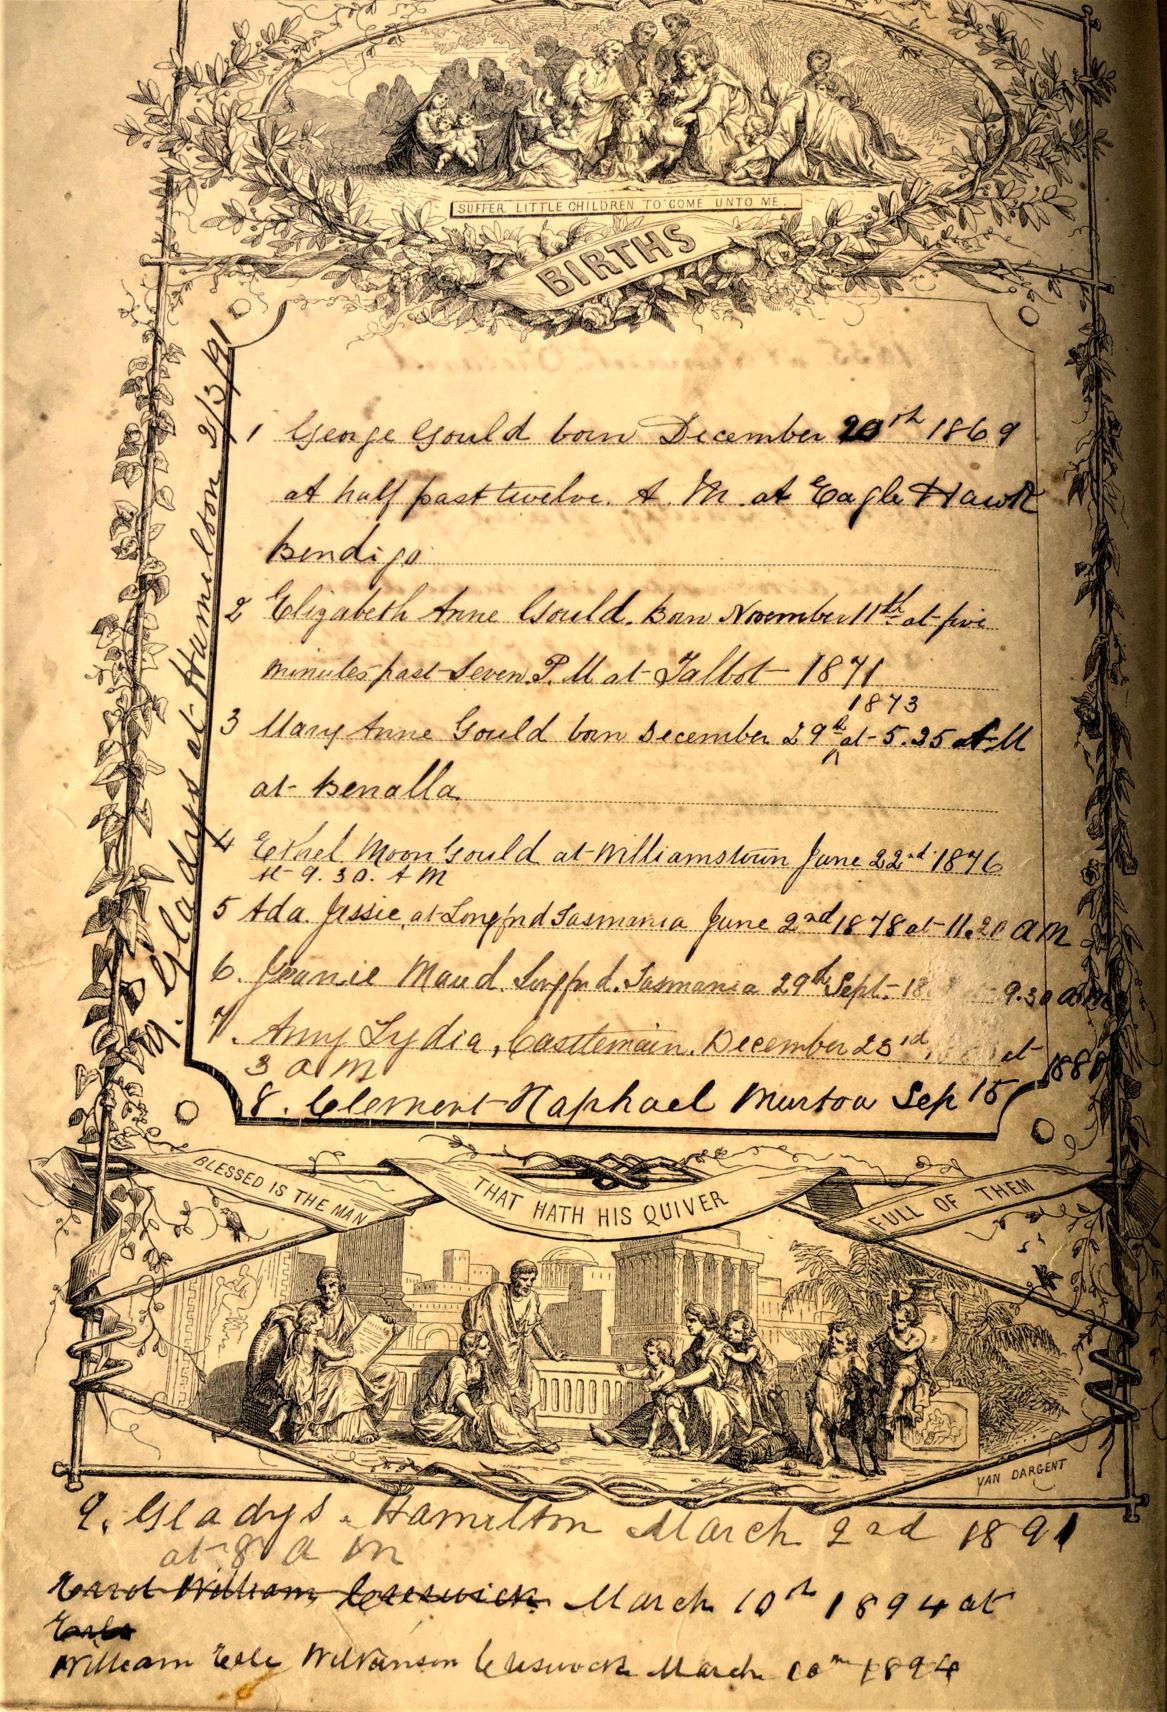 SUFFER LITTLE CHILDREN TO COME UNTO ME.
BIRTHS
1 George Gould born December 20th 1869
at half past twelve. A. M. at Eagle Hawk
Bendigo
2 Elizabeth Anne Gould. Born November 11th at five
minutes past Seven. P. M at Talbot 1871
1873
3 Mary Anne Gould born December 29th ^ at 5.25 A. M
at Benalla
4 Ethel Moon Gould at Williamstown June 22nd 1876
at 9.30. A M
5 Ada Jessie, at Longfnd Tasmania June 2nd 1878 at 11.20 am
6. Jeanie Maud. Longfnd. Tasmania 29th Sept. 18 9.30 am
7. Amy Lydia, Castlemain. December 23rd at 1880
3 am
8. Clement Raphael Murtoa Sep 15
9. Gladys at Hamilton 2/3/91
BLESSED IS THE MAN
THAT HATH HIS QUIVER
FULL OF THEM
VAN DARGENT
9. Gladys. Hamilton March 2nd 1891
at 8 a m
Errol William Creswick March 10th 1894 at
Earle
William Earle Wilkinson Creswick March 10th 1894